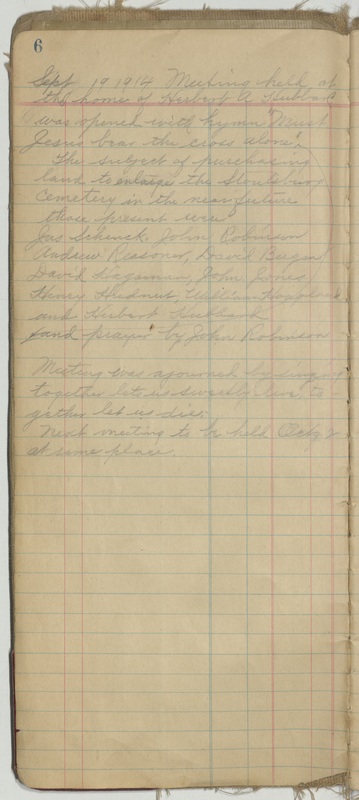 6
Sept 19 1914 Meeting held at
the home of Herbert A Hubbard
was opened with hymn "Must
Jesus bear the cross alone".
The subject of purchasing
land to enlarge the Stoutsburg
Cemetery in the near future
those present were
Jas Schenck, John Robinson
Andrew Reasoner, David
David Wagaman, John Jones
Henry William
and Herbert Hubbard
and prayer by John Robinson
Meeting was ajourned by singing
together let us sweetly live, to-
gether let us die:
next meeting to be held
at same place.